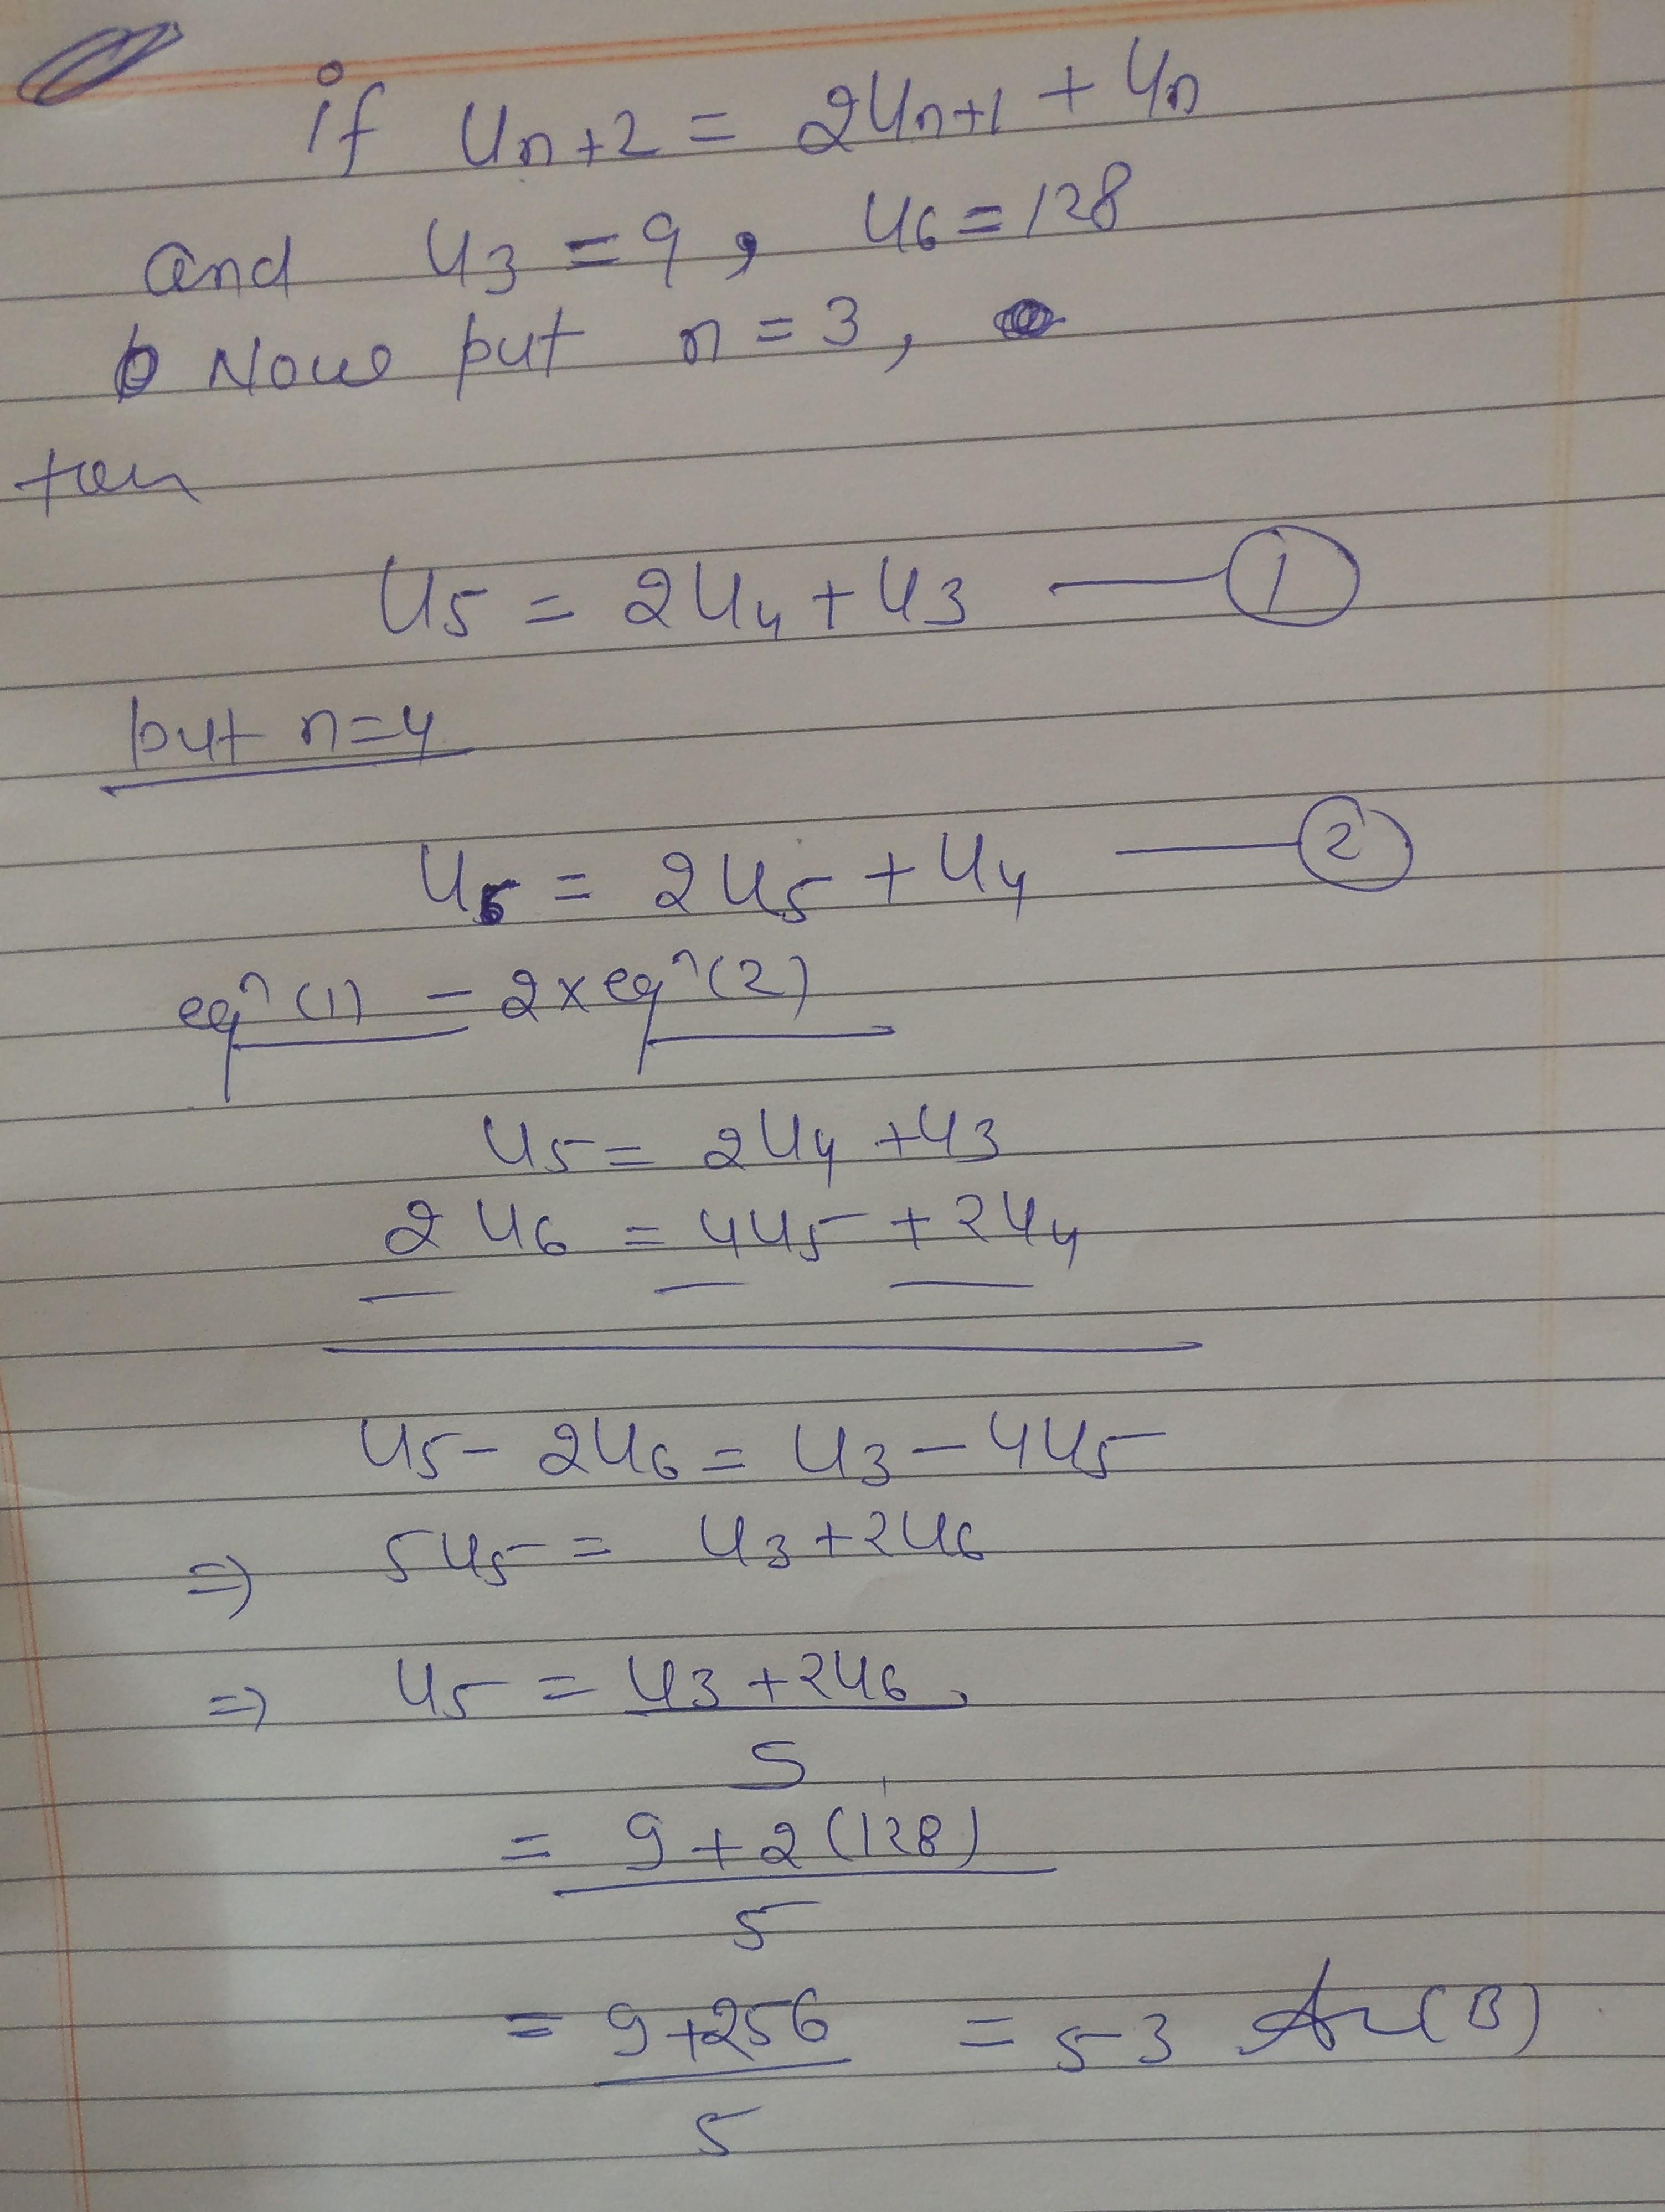 if u_n+2 = 2u_n+1 + u_n
and u_3 = 9, u_6 = 128
Now put n = 3,
ten
u_5 = 2u_4 + u_3 — ①
put n=4
u_6 = 2u_5 + u_4 — ②
eqⁿ(1) − 2×eqⁿ(2)
u_5 = 2u_4 + u_3
2u_6 = 4u_5 + 2u_4
— — —
u_5 − 2u_6 = u_3 − 4u_5
⇒ 5u_5 = u_3 + 2u_6
⇒ u_5 = u_3 + 2u_6
5
= 9 + 2(128)
5
= 9+256 = 53 Ans(B)
5